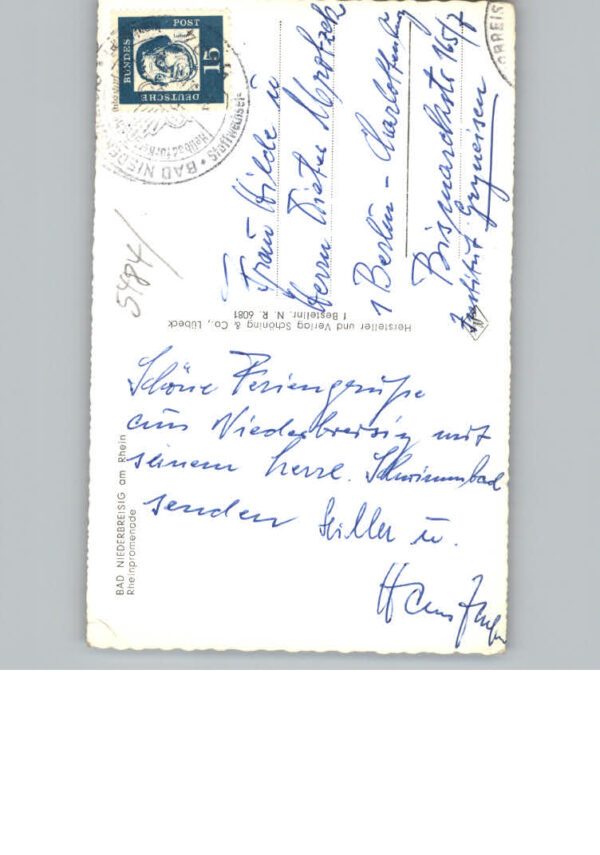 BUNDES POST
15
DEUTSCHE
BAD NIEDER
5484/
Frau Hilde u
Herrn Dieter
1 Berlin - Charlottenburg
Bismarckstr. 165/7
Institut Gryneisen
Hersteller und Verlag Schöning & Co., Lübeck
1 Bestellnr. N. R. 6081
BAD NIEDERBREISIG am Rhein
Rheinpromenade
Schöne Feriengrüße
aus Niederbreisig mit
seinem herrl. Schwimmbad
senden u.
Hans